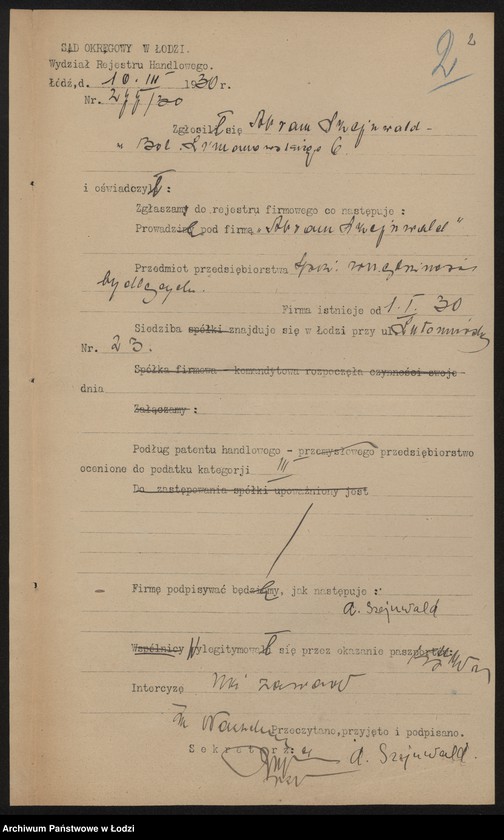 2
2
SĄD OKRĘGOWY W ŁODZI.
Wydział Rejestru Handlowego.
Łódź,d. 10. III 1930 r.
Nr. /30
Zgłosił się Abram Szejnwald -
6
i oświadczył :
Zgłaszam do rejestru firmowego co następuje :
Prowadzę pod firmą „Abram Szejnwald"
Przedmiot przedsiębiorstwa
bydlęcych.
Firma istnieje od 1. I. 30
Siedziba spółki znajduje się w Łodzi przy ul. Lutomierskiej
Nr. 23.
Spółka firmowa - komandytowa rozpoczęła czynności swoje -
dnia
Załączamy :
Podług patentu handlowego - przemysłowego przedsiębiorstwo
ocenione do podatku kategorji III
Do zastępowania spółki upoważniony jest
Firmę podpisywać będę, jak następuje :
A. Szejnwald
Wspólnicy Wylegitymował się przez okazanie
Intercyzę nie zawarł
Przeczytano,przyjęto i podpisano.
Sekretarz: A. Szejnwald.
Archiwum Państwowe w Łodzi